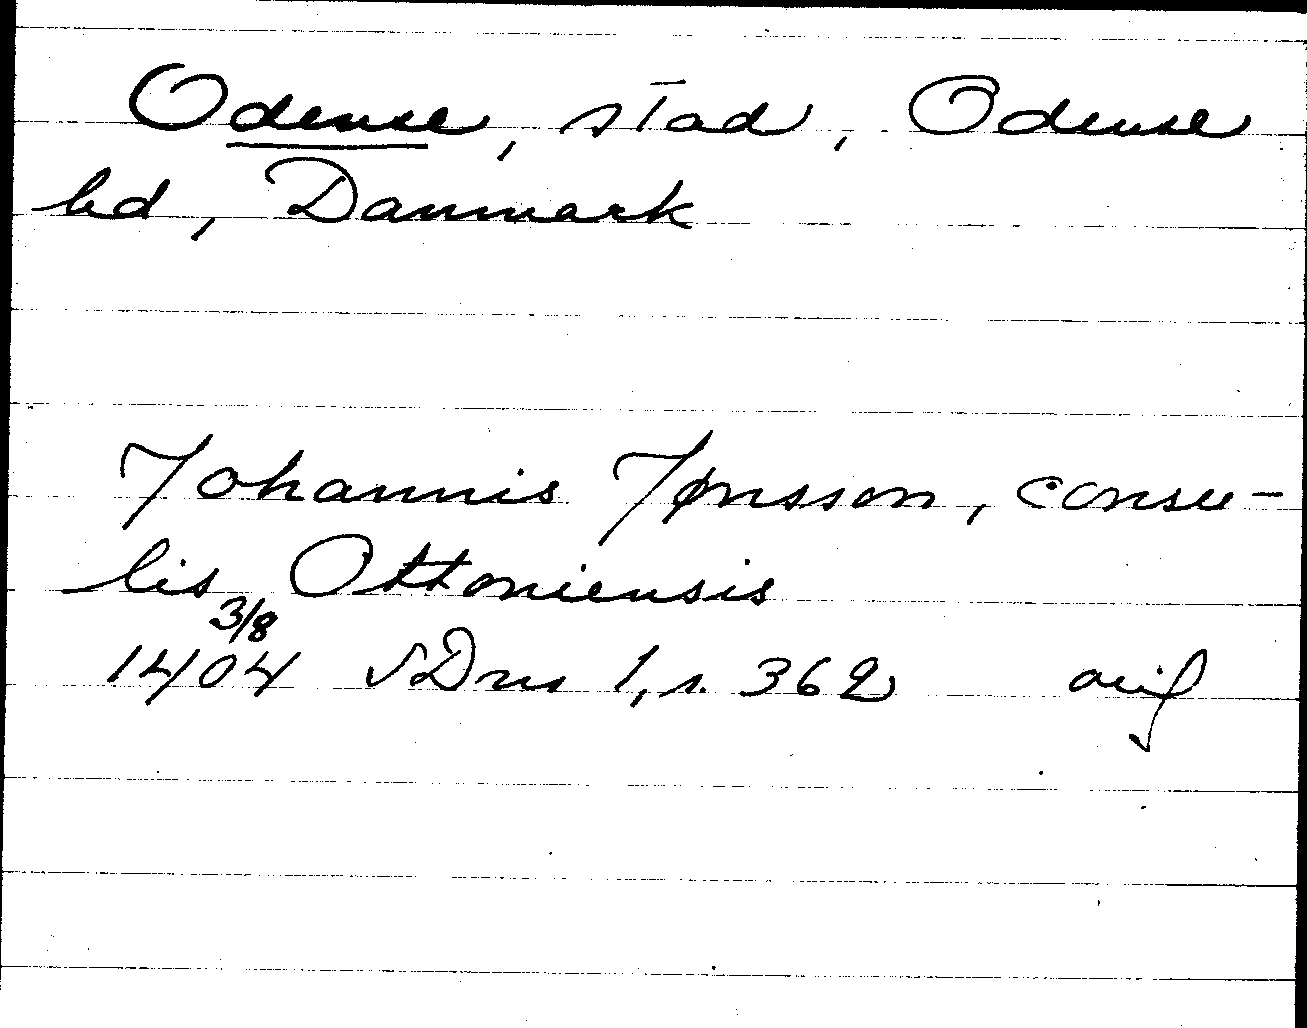 Odense, stad, Odense
hd, Danmark
Johannis Jønsson, consu-
lis Ottoniensis
3/8
1404 SDns 1, s. 362 orig